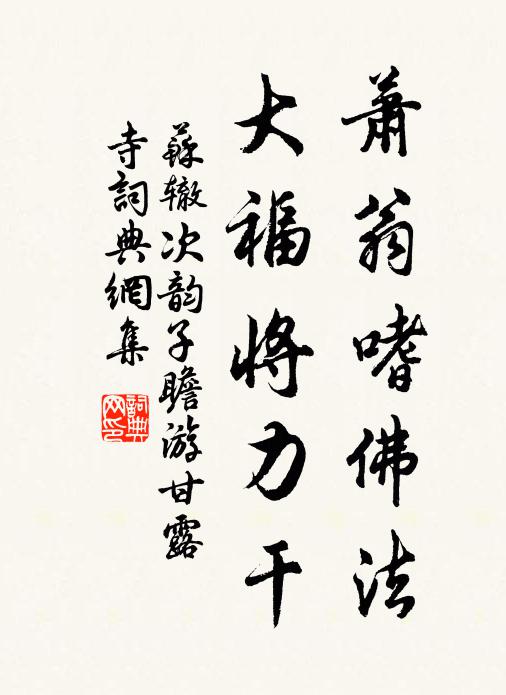 萧翁嗜佛法
大福将力干
蘇辙次韵子瞻游甘露
寺詞典網集
詞典
网印